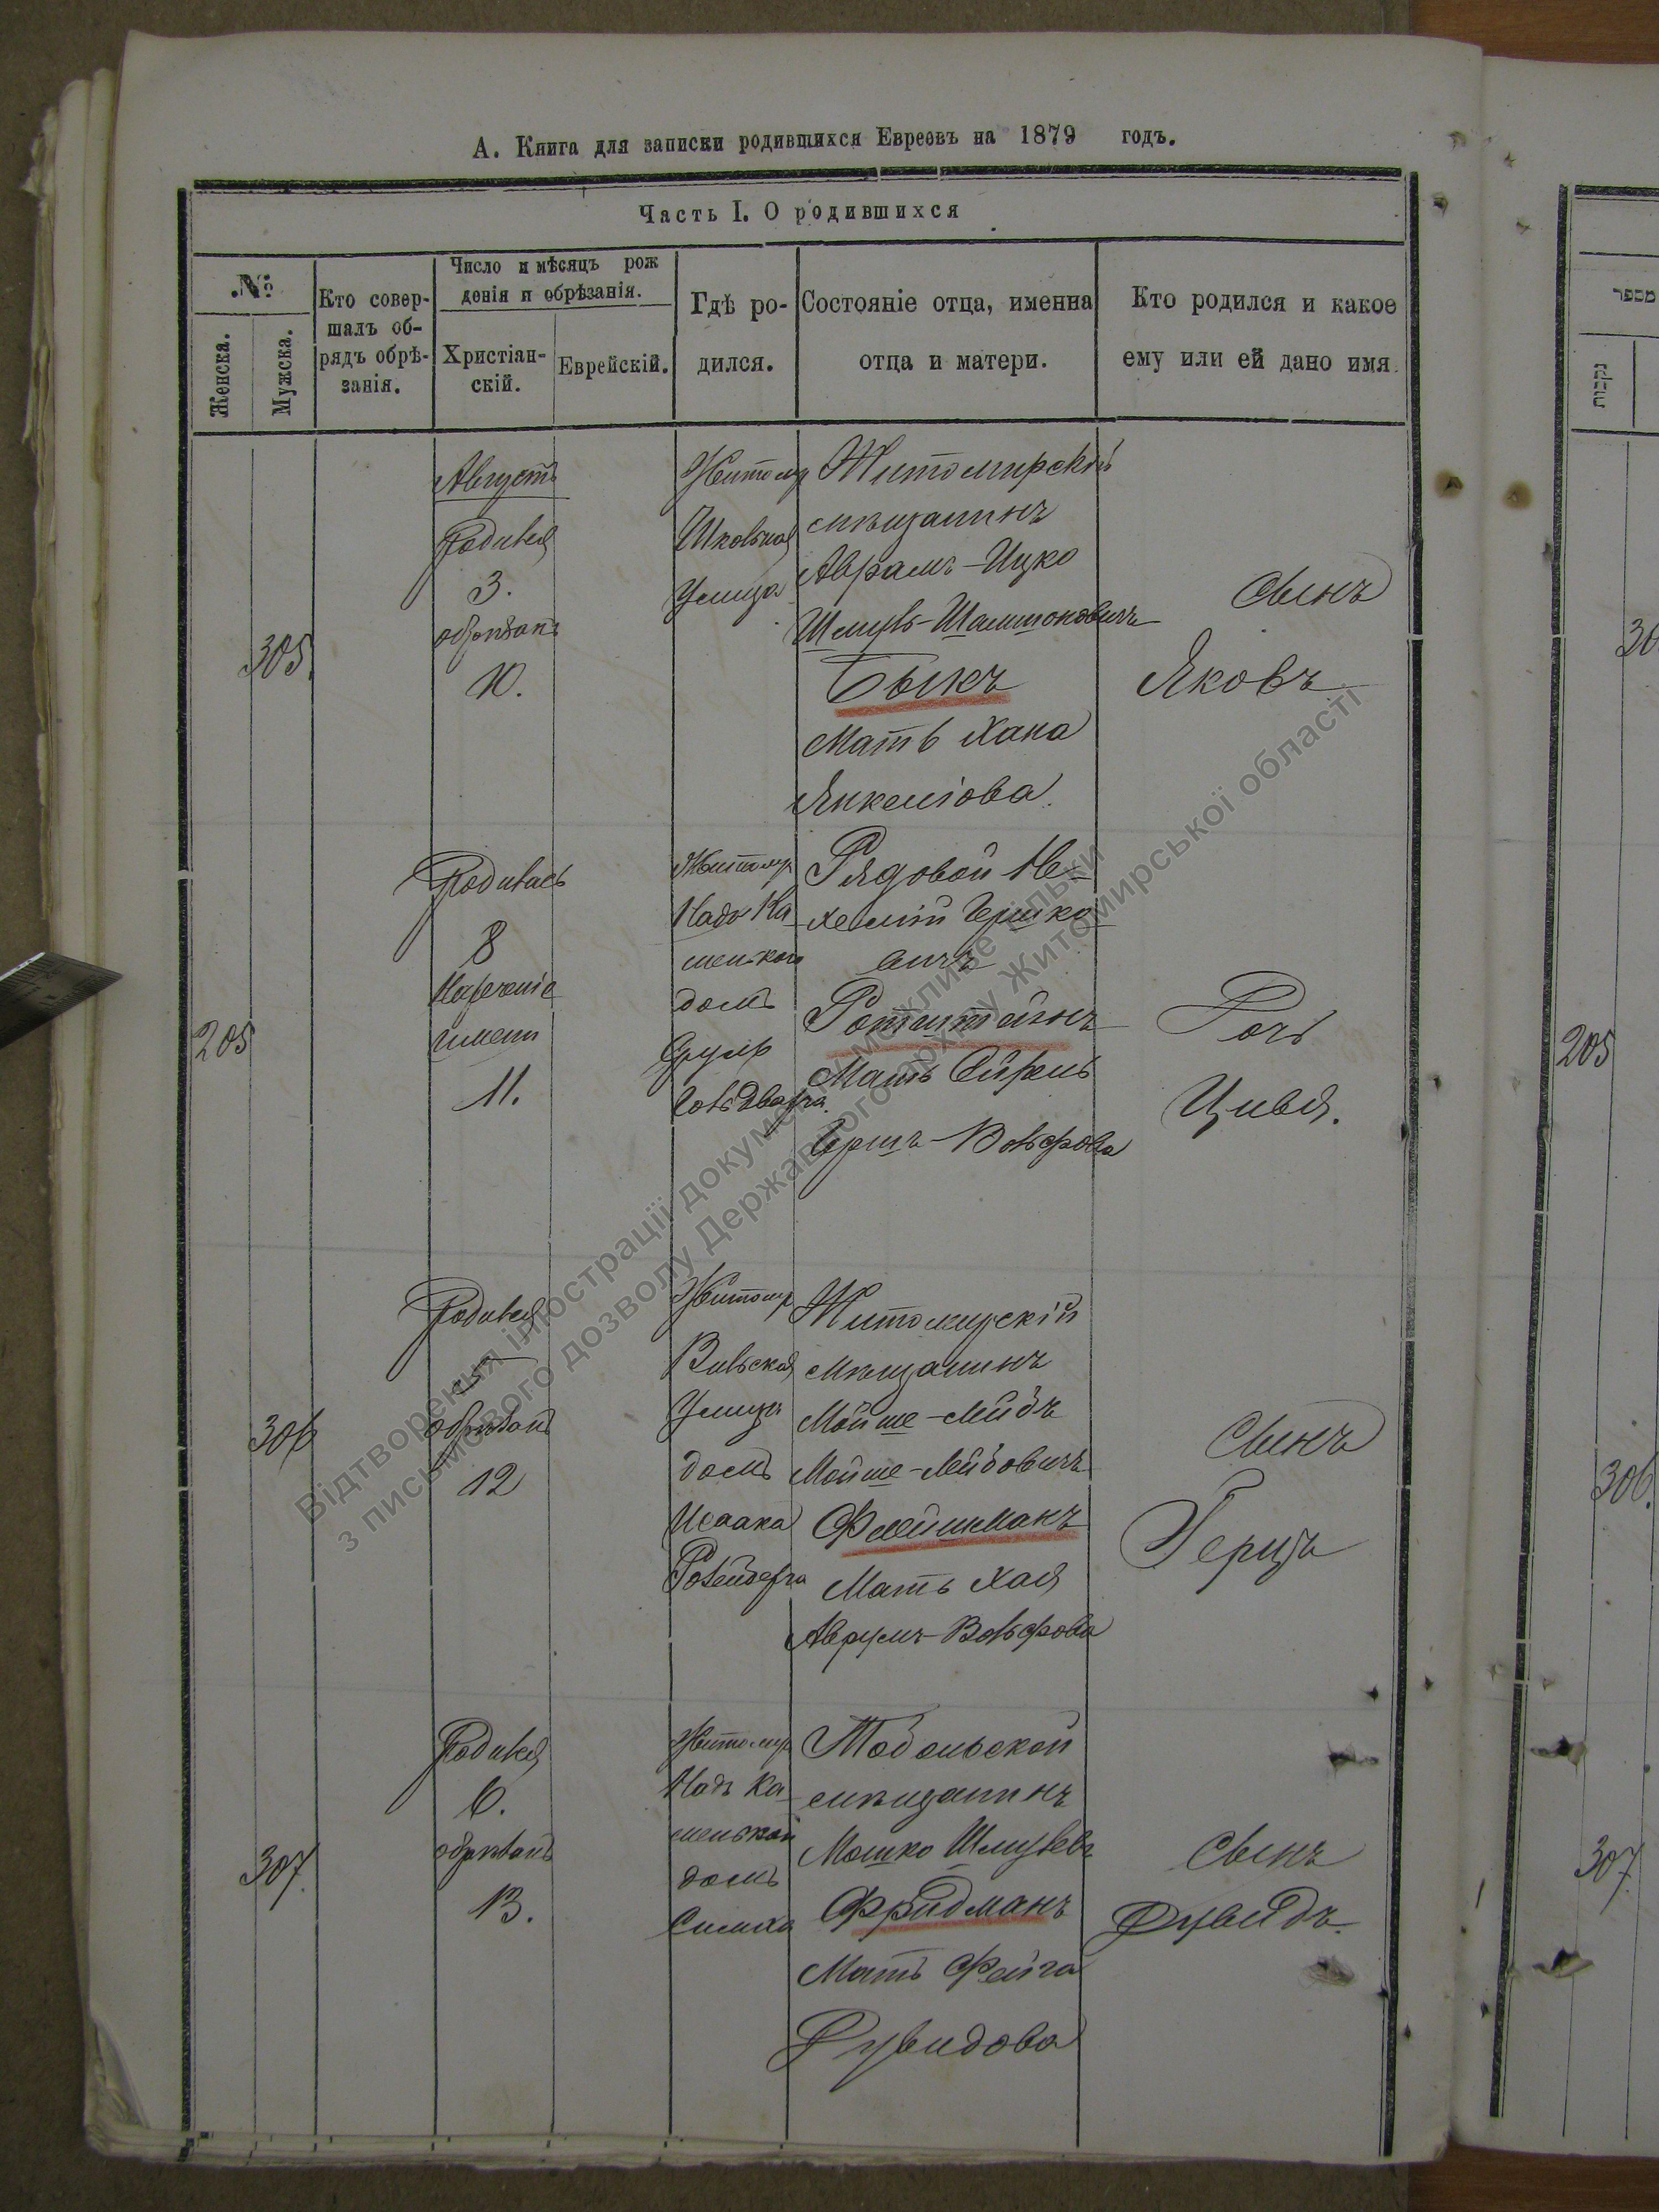 А. Книга для записки родившихся Евреевъ на 1879 годъ.
Часть I. О родившихся
№
Женска.
Мужска.
Кто совер-
шалъ об-
рядъ обрѣ-
занія.
Число и мѣсяцъ рож
денія и обрѣзанія.
Христіан-
скій.
Еврейскій.
Гдѣ ро-
дился.
Состояніе отца, именна
отца и матери.
Кто родился и какое
ему или ей дано имя.
305.
Августъ
Родился
3.
обрѣзанъ
10.
Житомир
Школьная
Улица
Житомирскій
мѣщанинъ
Аврамъ-Ицко
Шмуль-Шамшоновичъ
Быкъ
Мать Хана
Янкелiова.
Сынъ
Яковъ
205
Родилась
8
Нареченіе
имени
11.
Житомир
Надъ Ка-
менкою
домъ
Сруля
Рядовой Не-
хемiй Гершко
вичъ
Ротштейнъ
Мать Сирень
Герш-Вольфова
Дочь
Цивья.
306
Родился
5
обрѣзанъ
12
Житомир
Вильская
Улица
домъ
Исаака
Житомирскій
мѣщанинъ
Мойше-Лейбъ
Мойше-Лейбовичъ
Флейшманъ
Мать Хая
Аврумъ-Вольфова
Сынъ
Герцъ
307.
Родился
6.
обрѣзанъ
13.
Житомир
Надъ Ка-
менкой
домъ
Симха
Тобольской
мѣщанинъ
Мошко Шмулевъ
Фридманъ
Мать Фейга
Рувидова
Сынъ
Рувидъ.
מספר
נקבות
205
306.
307
Відтворення ілюстрації документу можливе тільки
з письмового дозволу Державного архіву Житомирської області